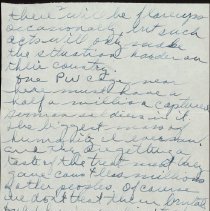 there will be flareups
occasionally, but such
acts will only make
the situation harder on
their country.
One PW Cage near
here must have a
half a million captured
German soldiers in it.
The biggest mass of
humanity I ever saw,
and they are getting a
taste of the treatment they
gave countless millions
of other peoples. Of course
we don't treat them brutally